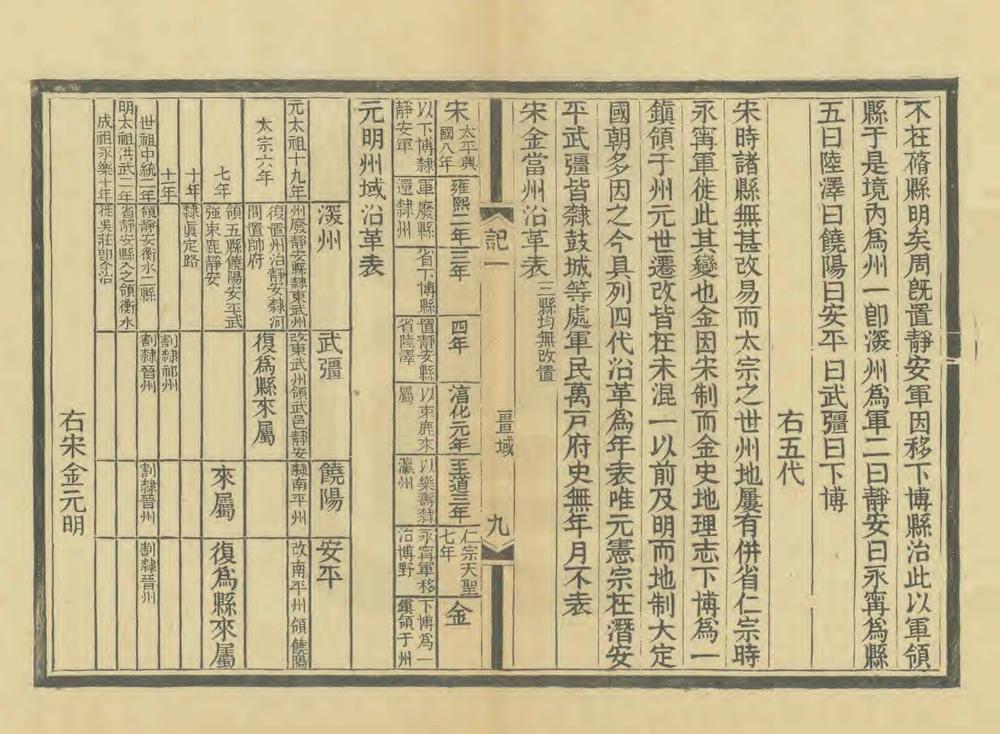 不在脩縣明矣周旣置靜安軍因移下博縣治此以軍領
縣于是境內爲州一卽㴱州爲軍二曰靜安曰永寗爲縣
五曰陸澤曰饒陽曰安平曰武彊曰下博
右五代
宋時諸縣無甚改易而太宗之世州地屢有併省仁宗時
永寗軍徙此其變也金因宋制而金史地理志下博爲一
鎭領于州元世遷改皆在未混一以前及明而地制大定
國朝多因之今具列四代沿革爲年表唯元憲宗在潛安
平武彊皆隸鼓城等處軍民萬戶府史無年月不表
宋金當州沿革表 三縣均無改置
記一 畺域 九
宋 太平興國八年 雍熙二年 三年 四年 淳化元年 至道三年 仁宗天聖七年 金
以下博隸靜安軍 軍廢縣還隸州 省下博縣 置靜安縣省陸澤 以束鹿來屬 以樂壽隸瀛州 永寗軍移治博野 下博爲一鎭領于州
元明州域沿革表
㴱州 武彊 饒陽 安平
元太祖十九年 州廢靜安縣隸東武州 改東武州領武邑靜安 隸南平州 改南平州領饒陽
太宗六年 復置州治靜安隸河間置帥府 復爲縣來屬
七年 領五縣饒陽安平武强束鹿靜安 來屬 復爲縣來屬
十年 隸眞定路
十一年 割隸祁州
世祖中統二年 領靜安衡水二縣 割隸晉州 割隸晉州 割隸晉州
明太祖洪武二年 省靜安縣入之領衡水
成祖永樂十年 徙吳莊卽今治
右宋金元明